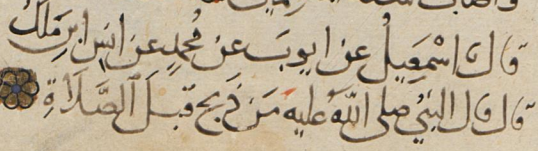 قال اسمعيل عن ايوب عن محمد عن انس ابن ملك
قال قال النبي صلى الله عليه من ذبح قبل الصلاة